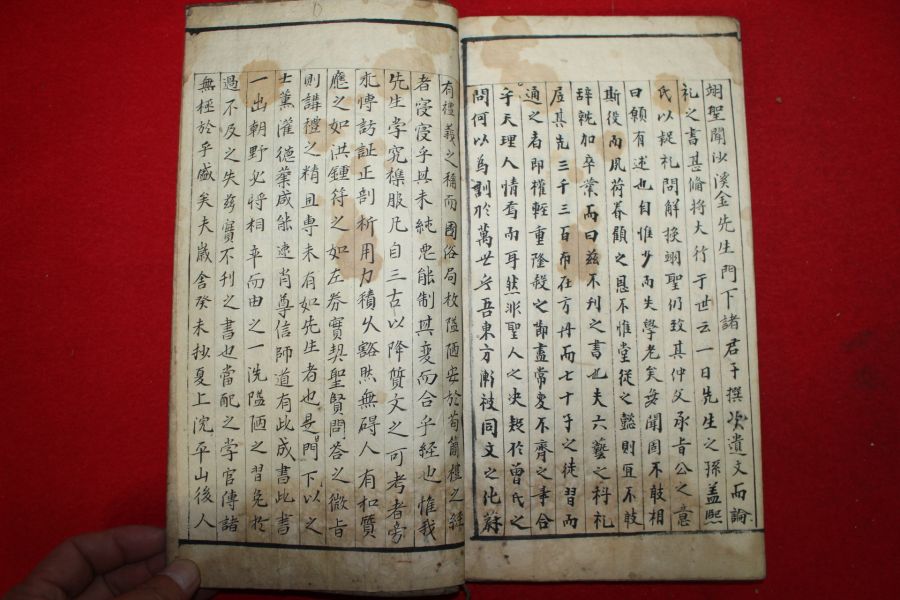 翊聖聞沙溪金先生門下諸君子撰次遺文而論
礼之書甚偹將大行于世云一日先生之孫益熙
氏以疑礼問解投翊聖仍致其仲父承旨公之意
曰願有述也自惟少而失學老矣無聞固不敢相
斯役而夙荷眷顧之恩不惟堂從之懿則冝不敢
辞輒加卒業而曰玆不刋之書也夫六藝之科礼
居其先三千三百布在方丹而七十子之徒習而
通之者即權輕重隆殺之節盡常変不齊之事合
乎天理人情焉而耳然非聖人之决疑於曾氏之
問何以為割於萬世乎吾東方漸被同文之化蔚
有禮義之稱而國俗局於隘陋安於苟簡禮之經
者寖寖乎其未純惡能制其変而合乎経也惟我
先生学究禮服凡自三古以降質文之可考者旁
求傳訪証正剖析用力積久豁然無碍人有扣質
應之如洪鍾符之如左券實契聖賢問答之微旨
則講禮之精且專未有如先生者也是門下以之
士薰灌德業咸能逮肖尊信師道有此成書此書
一出朝野必將相率而由之一洗隘陋之習免於
過不及之失玆實不刋之書也當配之学官傳諸
無極於乎盛矣夫歲舍癸未秒夏上浣平山後人